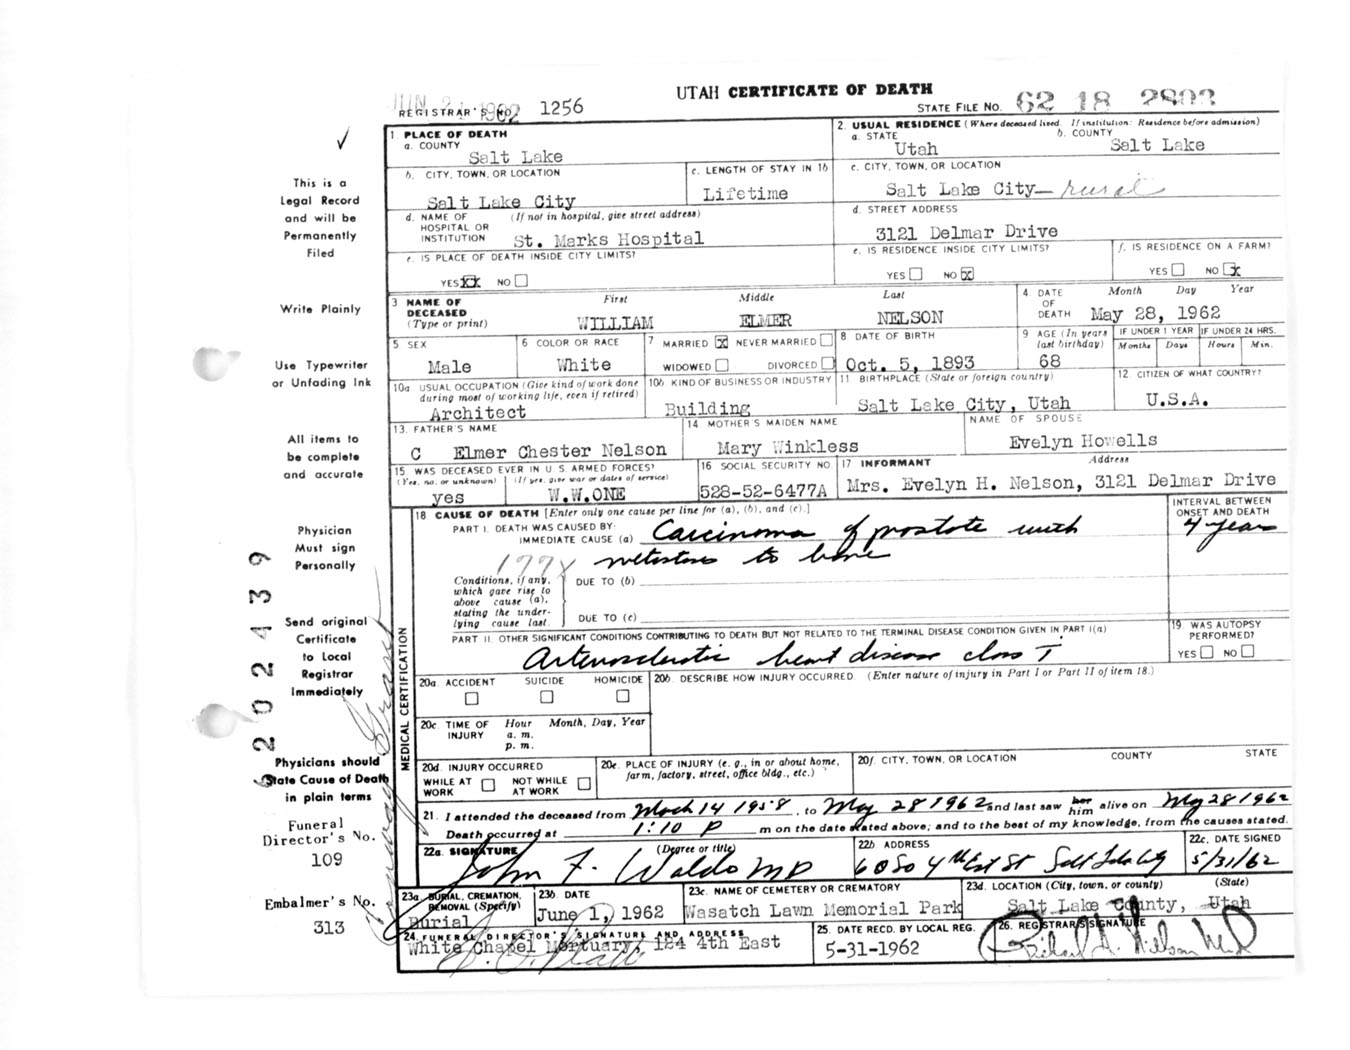 UTAH CERTIFICATE OF DEATH
REGISTRAR'S NO. 1256
STATE FILE NO. 62 18 2803
1. PLACE OF DEATH
a. COUNTY
Salt Lake
2. USUAL RESIDENCE (Where deceased lived. If institution: Residence before admission)
a. STATE
Utah
b. COUNTY
Salt Lake
b. CITY, TOWN, OR LOCATION
Salt Lake City
c. LENGTH OF STAY IN 1b
Lifetime
c. CITY, TOWN, OR LOCATION
Salt Lake City— rural
d. NAME OF (If not in hospital, give street address)
HOSPITAL OR
INSTITUTION St. Marks Hospital
d. STREET ADDRESS
3121 Delmar Drive
e. IS PLACE OF DEATH INSIDE CITY LIMITS?
YES XX NO
e. IS RESIDENCE INSIDE CITY LIMITS?
YES NO X
f. IS RESIDENCE ON A FARM?
YES NO X
3 NAME OF
DECEASED
(Type or print)
First Middle Last
WILLIAM ELMER NELSON
4. DATE
OF
DEATH
Month Day Year
May 28, 1962
5. SEX
Male
6 COLOR OR RACE
White
7 MARRIED X NEVER MARRIED
WIDOWED DIVORCED
8 DATE OF BIRTH
Oct. 5, 1893
9 AGE (In years
last birthday)
68
IF UNDER 1 YEAR IF UNDER 24 HRS.
Months Days Hours Min.
10a USUAL OCCUPATION (Give kind of work done
during most of working life, even if retired)
Architect
10b KIND OF BUSINESS OR INDUSTRY
Building
11 BIRTHPLACE (State or foreign country)
Salt Lake City, Utah
12. CITIZEN OF WHAT COUNTRY?
U.S.A.
13. FATHER'S NAME
C Elmer Chester Nelson
14 MOTHER'S MAIDEN NAME
Mary Winkless
NAME OF SPOUSE
Evelyn Howells
15 WAS DECEASED EVER IN U.S. ARMED FORCES?
(Yes, no, or unknown) (If yes, give war or dates of service)
yes W.W.ONE
16 SOCIAL SECURITY NO.
528-52-6477A
17 INFORMANT Address
Mrs. Evelyn H. Nelson, 3121 Delmar Drive
18. CAUSE OF DEATH [Enter only one cause per line for (a), (b), and (c).]
INTERVAL BETWEEN
ONSET AND DEATH
PART I. DEATH WAS CAUSED BY:
IMMEDIATE CAUSE (a) Carcinoma of prostate with 4 years
177X metastases to bone
Conditions, if any,
which gave rise to
above cause (a),
stating the under-
lying cause last.
DUE TO (b)
DUE TO (c)
PART II. OTHER SIGNIFICANT CONDITIONS CONTRIBUTING TO DEATH BUT NOT RELATED TO THE TERMINAL DISEASE CONDITION GIVEN IN PART I(a)
Arteriosclerotic heart disease class I
19. WAS AUTOPSY
PERFORMED?
YES NO
20a. ACCIDENT SUICIDE HOMICIDE
20b. DESCRIBE HOW INJURY OCCURRED. (Enter nature of injury in Part I or Part II of item 18.)
20c. TIME OF
INJURY
Hour Month, Day, Year
a. m.
p. m.
20d. INJURY OCCURRED
WHILE AT
WORK
NOT WHILE
AT WORK
20e. PLACE OF INJURY (e. g., in or about home,
farm, factory, street, office bldg., etc.)
20f. CITY, TOWN, OR LOCATION COUNTY STATE
21. I attended the deceased from March 14 1958, to May 28 1962 and last saw her him alive on May 28 1962
Death occurred at 1:10 P m on the date stated above; and to the best of my knowledge, from the causes stated.
22a. SIGNATURE (Degree or title)
John F. Waldo MD
22b ADDRESS
60 So 4th East St Salt Lake City
22c. DATE SIGNED
5/31/62
23a. BURIAL, CREMATION,
REMOVAL (Specify)
Burial
23b. DATE
June 1, 1962
23c. NAME OF CEMETERY OR CREMATORY
Wasatch Lawn Memorial Park
23d. LOCATION (City, town, or county) (State)
Salt Lake County, Utah
24. FUNERAL DIRECTOR'S SIGNATURE AND ADDRESS
White Chapel Mortuary, 124 4th East
25. DATE RECD. BY LOCAL REG.
5-31-1962
26. REGISTRAR'S SIGNATURE
MEDICAL CERTIFICATION
This is a
Legal Record
and will be
Permanently
Filed
Write Plainly
Use Typewriter
or Unfading Ink
All items to
be complete
and accurate
Physician
Must sign
Personally
Send original
Certificate
to Local
Registrar
Immediately
Physicians should
State Cause of Death
in plain terms
Funeral
Director's No.
109
Embalmer's No.
313
2 02439